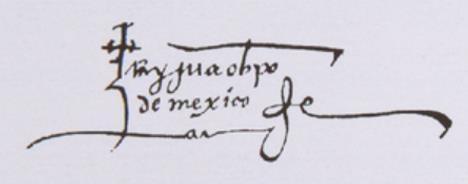 fray jua obpo
de mexico